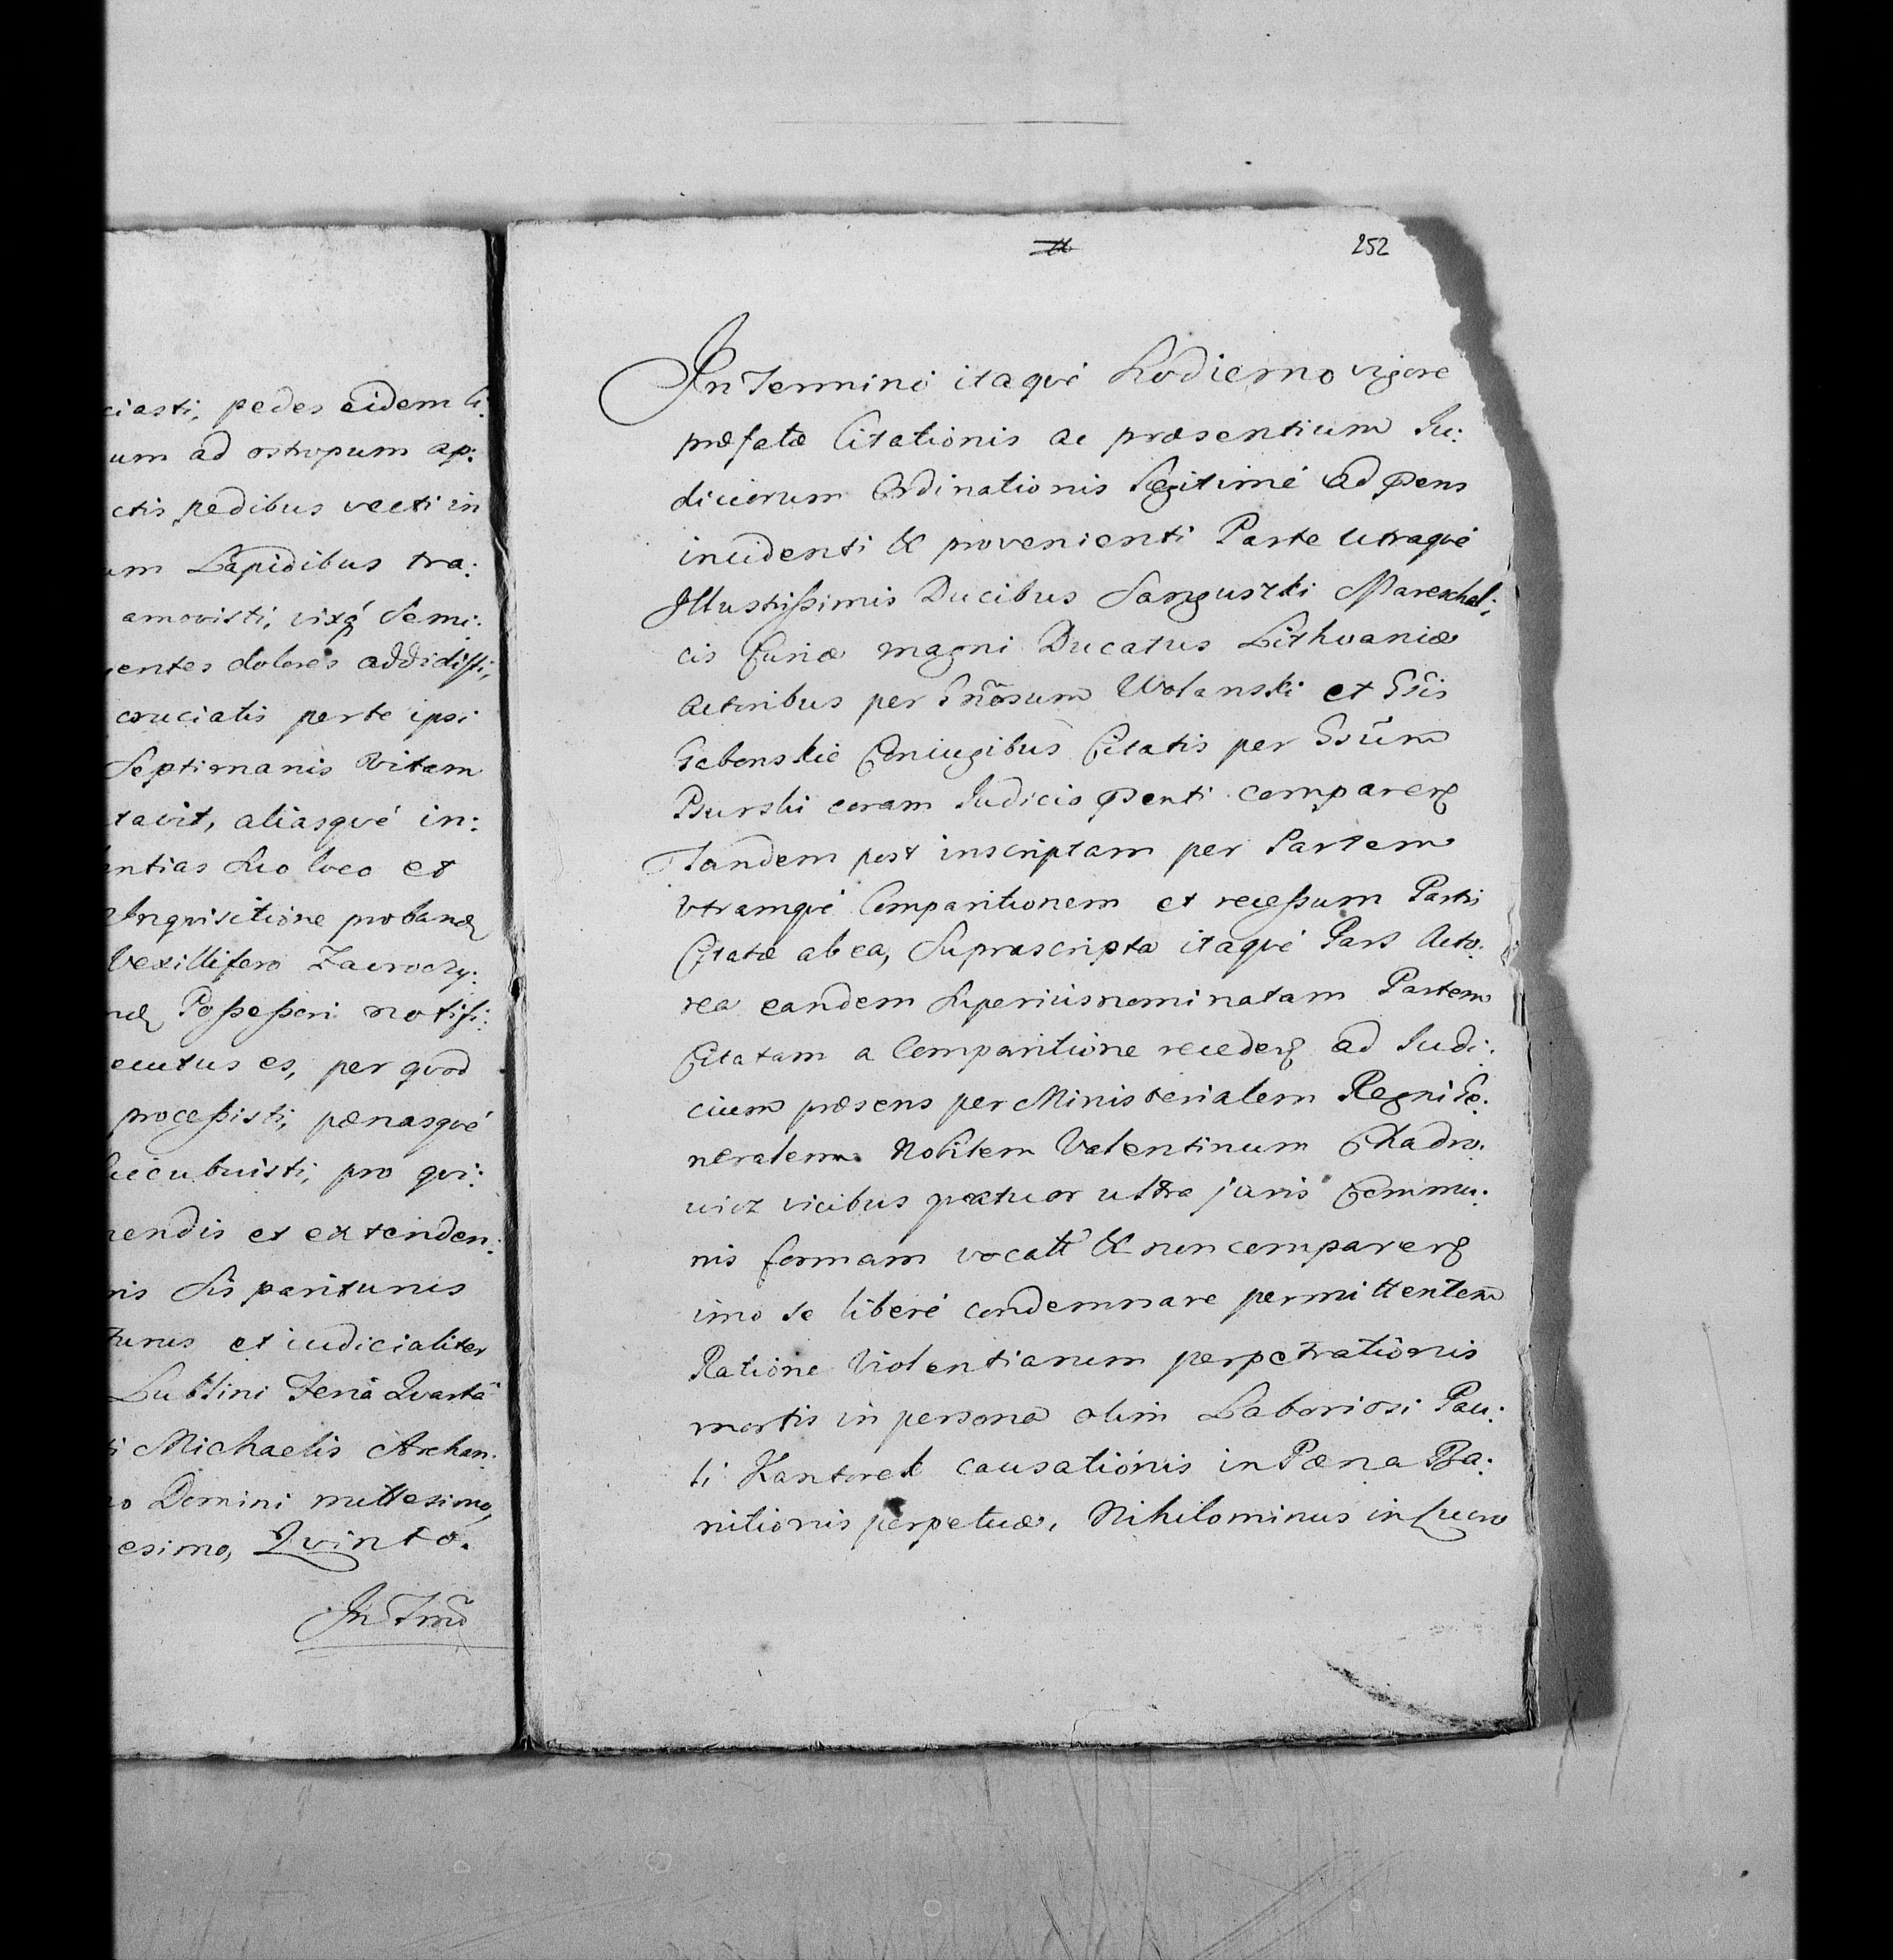 ciasti, pedes eidem li:
um ad ostropum ap:
ctis pedibus vecti in
um Lapidibus tra:
amovisti, vixq́ Semi:
entes dolores addidisti,
cruciatis perte ipsi
Septimanis Vitam
tavit, aliasqvé in:
ntias Suo loco et
Inqvisitione proband
Vexillifero Zacroczy:
Possessori notifi:
ecutus es, per qvod
processisti, pœnasqvé
succubuisti, pro qvi:
endis et extenden:
nis Sis pariturus
turus et iudicialiter
Lublini Feria Qvarta
ti Michaelis Archan:
no Domini millesimo,
esimo, Qvinto.
In Tmo
252
In Termino itaqvé hodierno vigore
præfatæ Citationis ac præsentium Iu:
diciorum Ordinationis Legitimé ad pens
incidenti & provenienti Parte Utraqvé
Illustrissimis Ducibus Sanguszki Mareschal:
cis Curiæ magni Ducatus Lithvaniæ
Actoribus per Gnosum Wolanski et Gsis
Gebenskie Coniugibus Citatis per Gsum
Burski coram Iudicio penti comparen
Tandem post inscriptam per Partem
Utramqvé Comparitionem et recessum Partis
Citatæ ab ea, Suprascripta itaqvé Pars Acto:
rea eandem Superiusnominatam Partem
Citatam a Comparitione receden ad Iudi:
cium præsens per Ministerialem Regni Ge:
neralem Nobilem Valentinum Chadro:
wicz vicibus qvatuor ultra juris Commu:
nis formam vocatt & non comparen
imo se liberé condemnare permittentem
Ratione Violentiarum perpetrationis
mortis in persona olim Laboriosi Pau:
li Kantorek causationis in Pœna Ba:
nitionis perpetuæ, Nihilominus in lucro